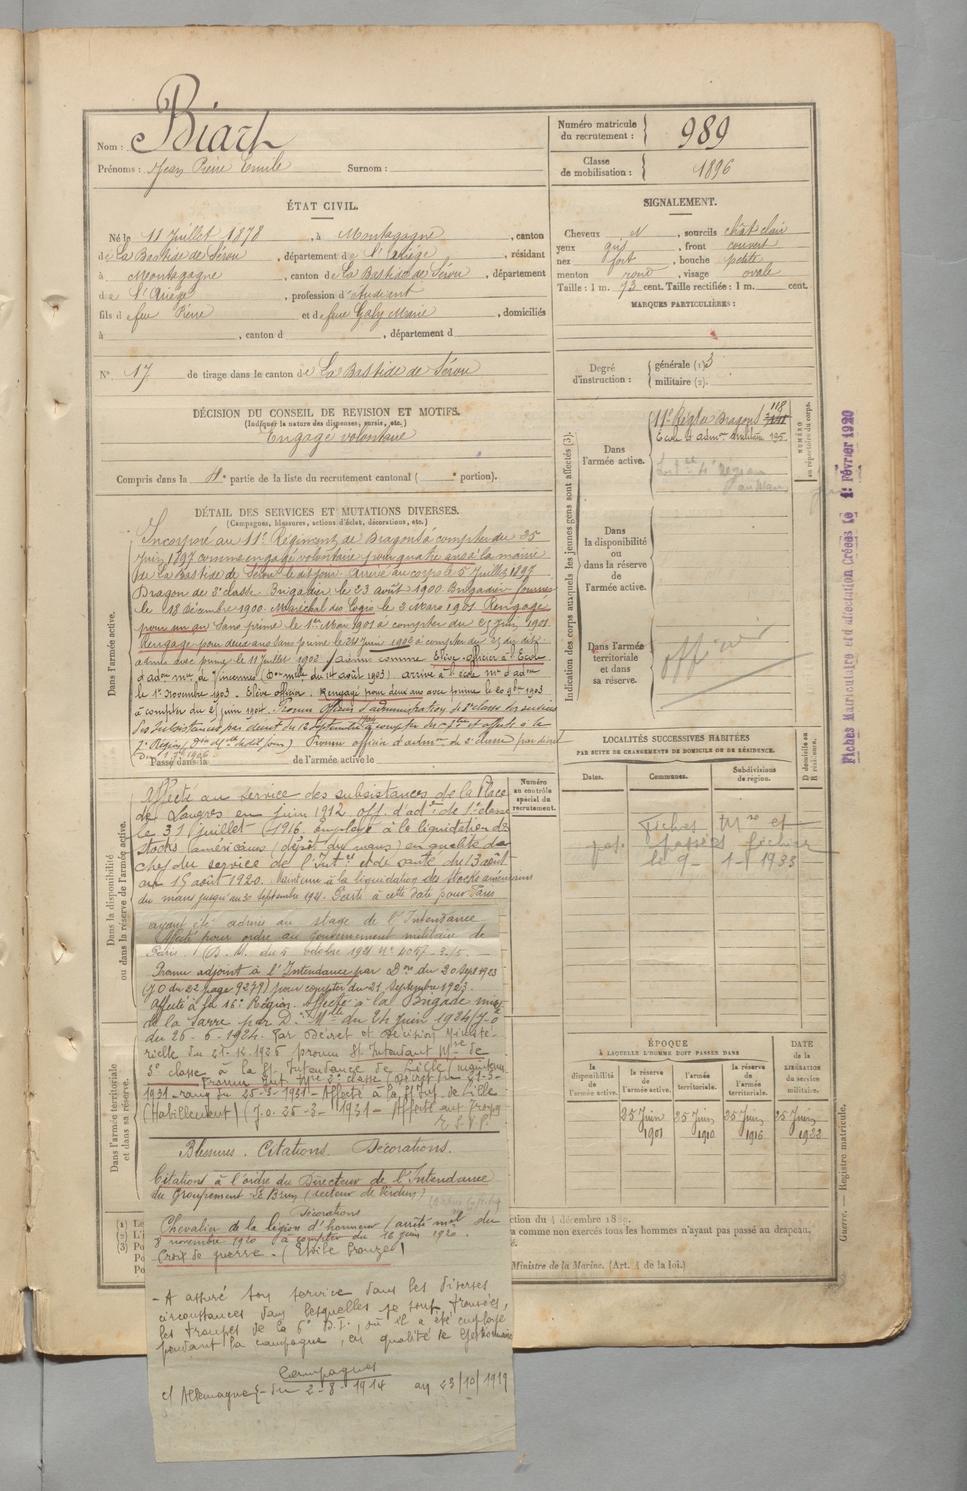 Nom : Biart
Prénoms : Jean Pierre Emile Surnom :
Numéro matricule du recrutement : 989
Classe de mobilisation : 1896
ÉTAT CIVIL.
Né le 11 Juillet 1878, à Montagagne, canton
de La Bastide de Sérou, département de l'Ariège, résidant
à Montagagne, canton de La Bastide de Sérou, département
de l'Ariège, profession d'étudiant
fils de feu Pierre et de feue Galy Marie, domiciliés
à , canton d , département d
N° 17 de tirage dans le canton de La Bastide de Sérou
SIGNALEMENT.
Cheveux N, sourcils chât clair
yeux gris, front couvert
nez fort, bouche petite
menton rond, visage ovale
Taille : 1 m. 73 cent. Taille rectifiée : 1 m. cent.
MARQUES PARTICULIÈRES :
Degré d'instruction : générale (1) 3
militaire (2).
DÉCISION DU CONSEIL DE REVISION ET MOTIFS.
(Indiquer la nature des dispenses, sursis, etc.)
Engagé volontaire
Compris dans la partie de la liste du recrutement cantonal ( portion).
DÉTAIL DES SERVICES ET MUTATIONS DIVERSES.
(Campagnes, blessures, actions d'éclat, décorations, etc.)
Dans l'armée active.
Incorporé au 11e Régiment de Dragons à compter du 25
Juin 1897 comme engagé volontaire pour quatre ans à la mairie
de La Bastide de Sérou le dit jour. Arrivé au corps le 5 Juillet 1897
Dragon de 2e classe. Brigadier le 23 août 1900. Brigadier fourrier
le 18 Décembre 1900. Maréchal des Logis le 3 Mars 1901. Rengagé
pour un an sans prime le 1er Mai 1901 à compter du 25 Juin 1901.
Rengagé pour deux ans sans prime le 24 Juin 1902 à compter du 25 du dit
avec prime le 11 Juillet 1902. Admis comme Elève officier à l'Ecole
d'adm on mre de Vincennes (Don mlle du 14 août 1903) arrivé à l'école mre d'adm
le 1er Novembre 1903. Elève officier. Rengagé pour deux ans avec prime le 20 9bre 1903
à compter du 25 juin 1904. Promu Officier d'administration de 3e classe du service
des subsistances par décret du 12 Septembre à compter du et affecté à la
7e Région (Don Mlle du dit jour) Promu officier d'admon de 2e classe par décret
Passé dans la de l'armée active le
Dans la disponibilité ou dans la réserve de l'armée active.
Affecté au service des subsistances de la Place
de Langres en juin 1912. off. d'adon de 1e classe
le 31 juillet 1916. Employé à la liquidation des
stocks américains (dépôt du mans) en qualité de
chef du service de l'Intce et de santé du 13 août
au 15 août 1920. Maintenu à la liquidation des stocks américains
du mans jusqu'au 30 septembre 1921. Parti à cette date pour Paris
ayant été admis au stage de l'Intendance
Affecté pour ordre au Gouvernement militaire de
Paris. (D. M. du 5 octobre 1921 N° 4057-3/5.
Promu adjoint à l'Intendance par Don du 20 sept 1923
(J O du 22 page 9279) pour compter du 21 Septembre 1923.
Affecté à la 16e Région. Affecté à la Brigade mixte
de la Sarre par D. Mlle du 24 Juin 1924 (J.O
du 26-6-1924. Par décret et décision Ministé-
rielle du 21-12-1926 promu St Intendant Mre de
3e classe à la St Intendance de Lille (maintenu
Promu Sst Intre 2e classe (Décret du 21-3-
1931 - rang du 25-3-1931 - Affecté à la St Int. de Lille
(Habillement) (J.O. 25-3-1931 - Affecté aux Troupes
T.S.V.P.
Blessures. Citations. Décorations.
Citations à l'ordre du Directeur de l'Intendance
du Groupement Le Brun (secteur de Verdun)
Décorations
Chevalier de la légion d'honneur (arrêté mel du
3 novembre 1920 à compter du 16 juin 1920.
Croix de guerre. (Etoile Bronze)
- A assuré son service dans les diverses
circonstances dans lesquelles se sont trouvées,
les troupes de la 6e D.I., où il a été employé
pendant la campagne, en qualité de Gestionnaire
Campagnes
c/ Allemagne du 2-8-1914 au 23/10/1919
Dans l'armée territoriale et dans sa réserve.
Numéro au contrôle spécial du recrutement.
Indication des corps auxquels les jeunes gens sont affectés (3).
Dans l'armée active.
11e Régt de Dragons 118
Ecole d'admon militaire 195
NUMÉRO au répertoire du corps.
Dans la disponibilité ou dans la réserve de l'armée active.
Dans l'armée territoriale et dans sa réserve.
officier
Fiches Matriculaire et d'affectation Créées le 1er Février 1920
LOCALITÉS SUCCESSIVES HABITÉES
PAR SUITE DE CHANGEMENTS DE DOMICILE OU DE RÉSIDENCE.
D domicile ou R résidence.
Dates. Communes. Subdivisions de région.
Fiches Mre et
passées fichier
le 9-1-1933
ÉPOQUE
À LAQUELLE L'HOMME DOIT PASSER DANS
la disponibilité de l'armée active.
la réserve de l'armée active.
l'armée territoriale.
la réserve de l'armée territoriale.
DATE de la LIBÉRATION du service militaire.
25 Juin 1901
25 Juin 1910
25 Juin 1916
25 Juin 1922
Guerre. — Registre matricule.
(1) Le
(2) L'i
(3) Po
Po
Po
ction du 4 décembre 1889.
a comme non exercés tous les hommes n'ayant pas passé au drapeau.
Ministre de la Marine. (Art. 4 de la loi.)